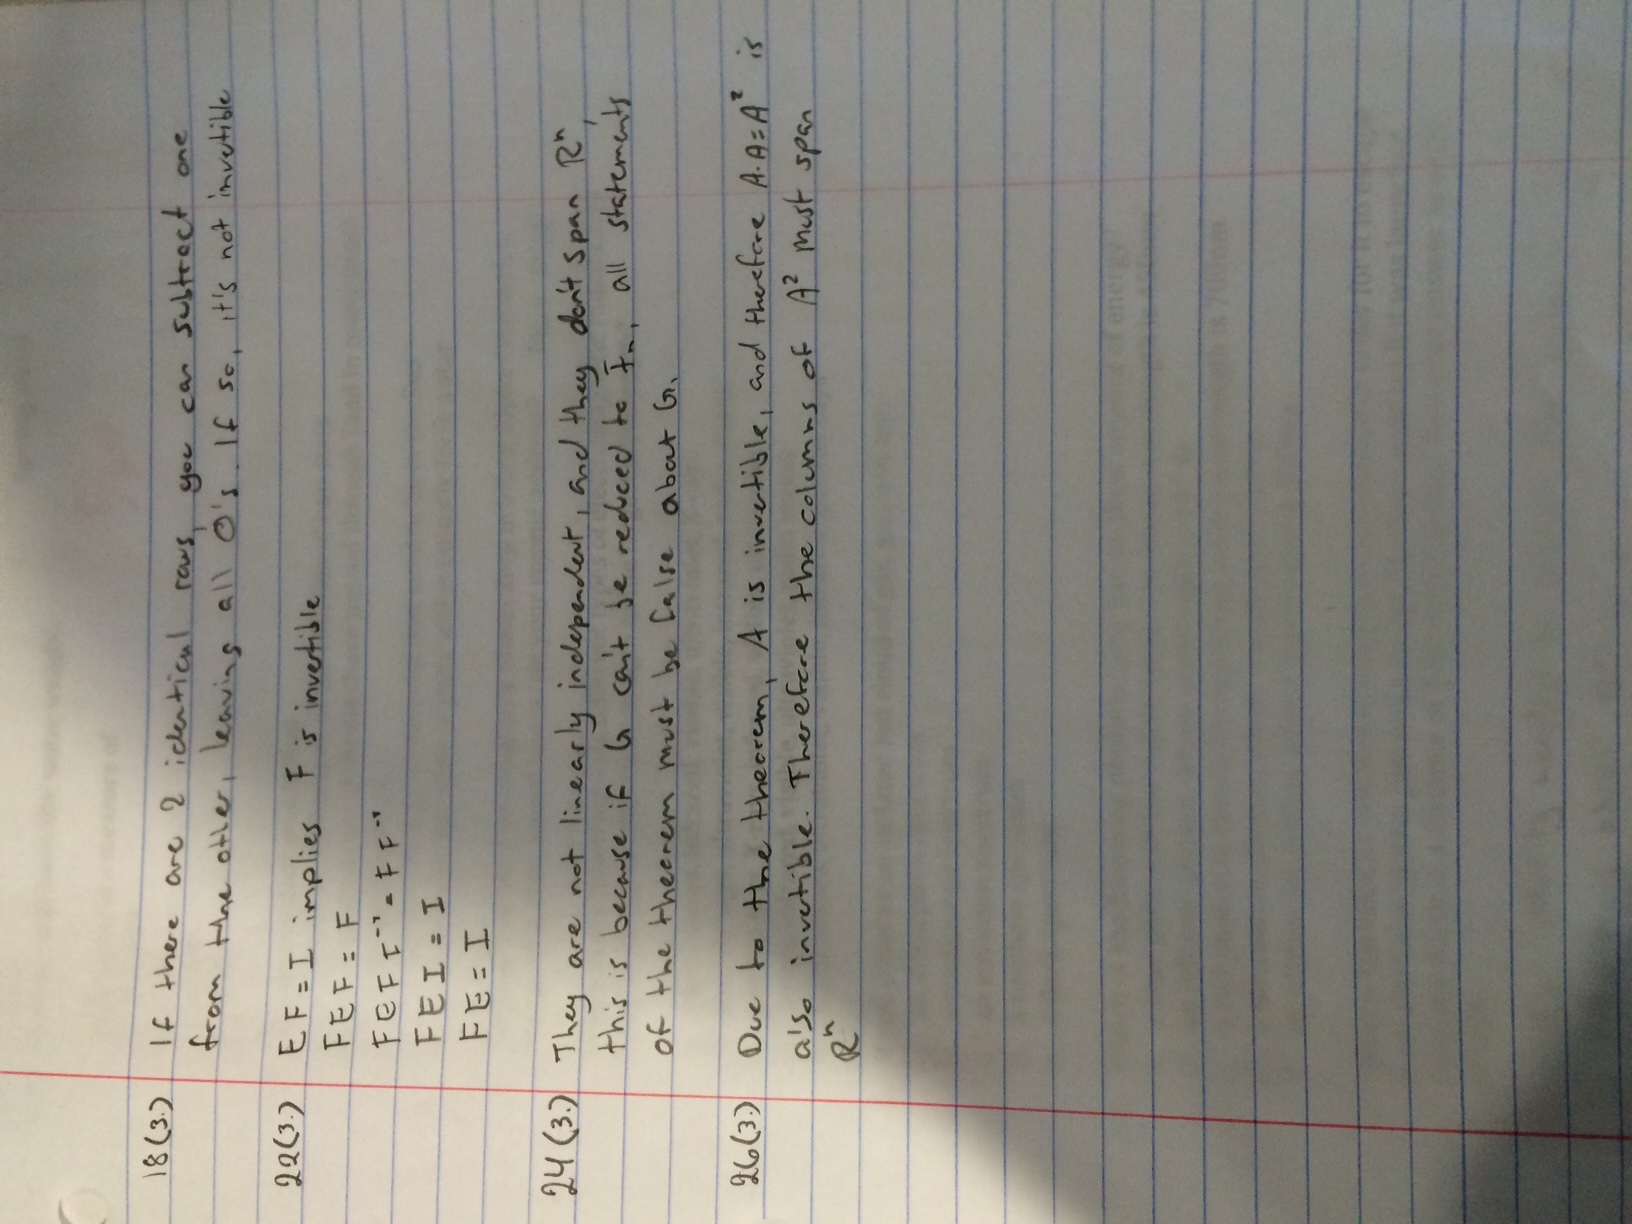 18(3.) If there are 2 identical rows, you can subtract one
from the other, leaving all 0's. If so, it's not invertible
22(3.) EF = I implies F is invertible
FEF = F
FEFF⁻¹ = FF⁻¹
FEI = I
FE = I
24(3.) They are not linearly independent, and they don't span Rⁿ,
this is because if G can't be reduced to Iₙ, all statements
of the theorem must be false about G.
26(3.) Due to the theorem, A is invertible, and therefore A·A=A² is
also invertible. Therefore the columns of A² must span
Rⁿ